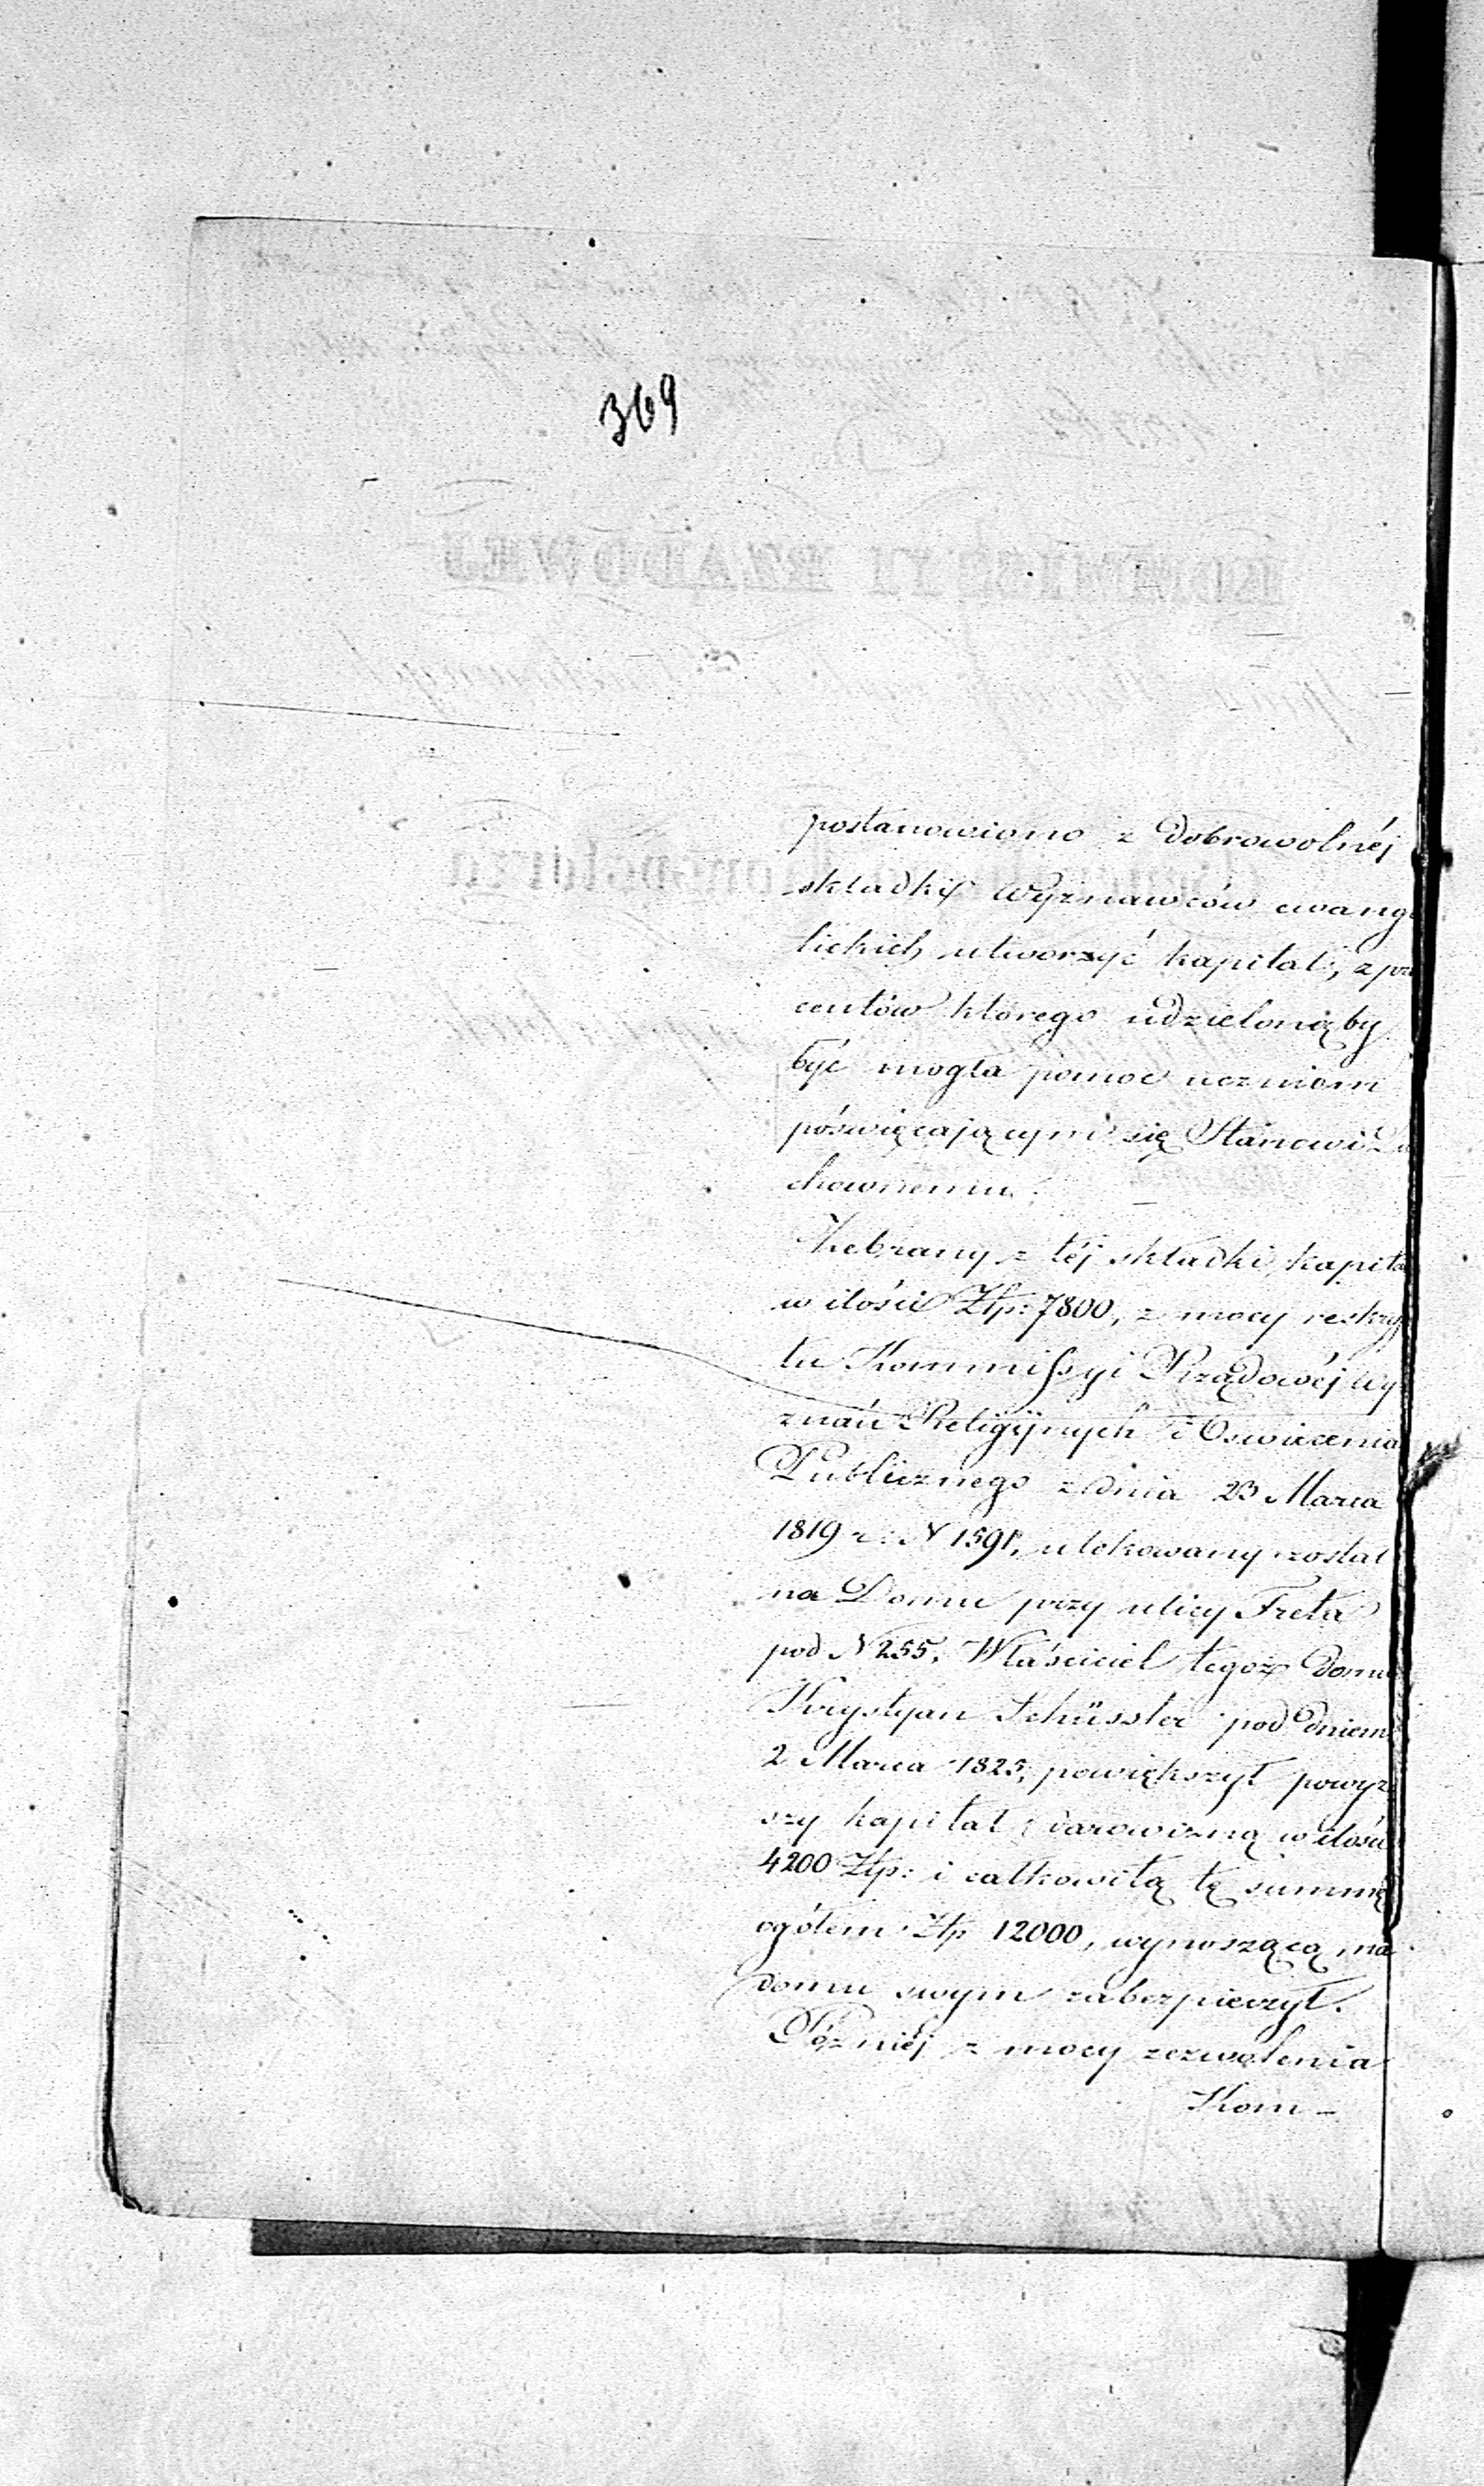 369
postanowiono z dobrowolnéj
składki Wyznawców ewang
lickich utworzyć kapitał, z pro
centów którego udzielonąby
być mogła pomoc uczniom
póswięcającym się Stanowi Du
chownemu.
Zebrany z téj składki kapita
w ilości Złp: 7800, z mocy reskryp
tu Kommissyi Rządowéj Wy
znań Religijnych i Oswiecenia
Publicznego z dnia 23 Marca
1819 r: N 1591, ulokowany został
na Domu przy ulicy Freta
pod N 255, Właściciel tegoż Domu
Krystyan Schüssler pod dniem
2 Marca 1825, powiększył powyż
szy kapitał darowizną w ilości
4200 Złp: i całkowitą tę summę
ogółem Złp 12000, wynoszącą na
domu swym zabezpieczył.
Pózniéj z mocy zezwolenia
Kom-